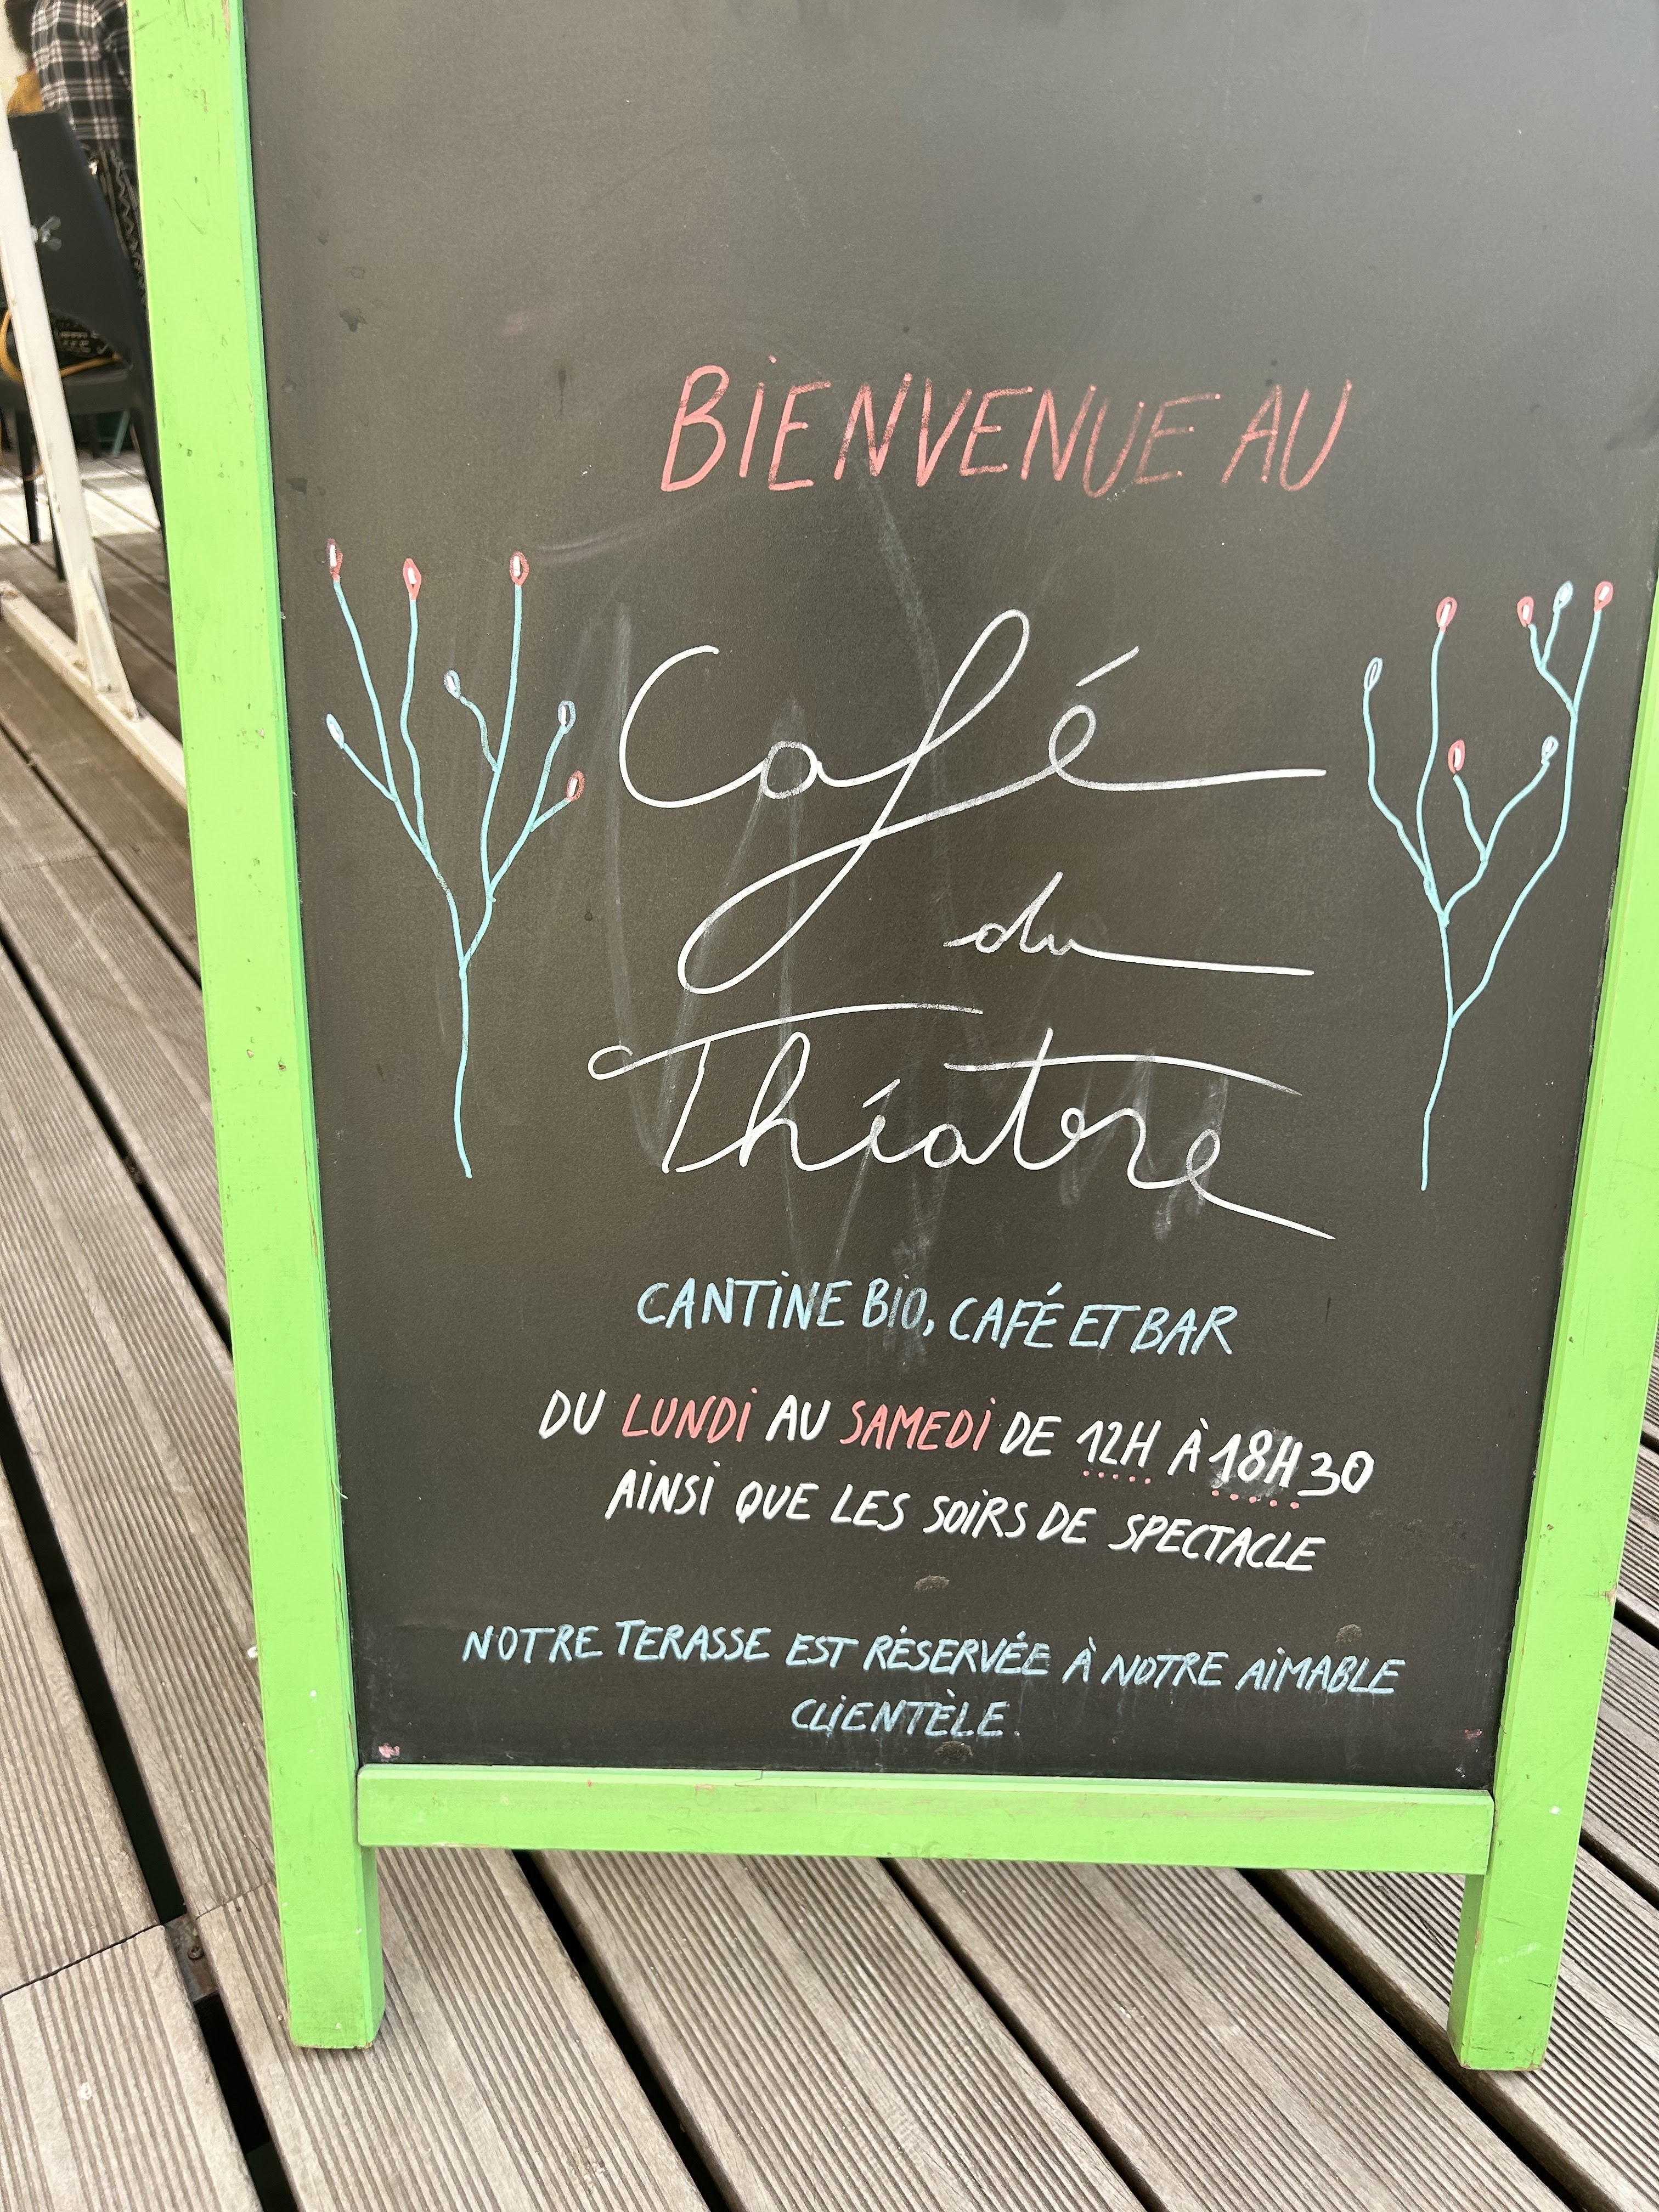 BIENVENUE AU
Café
du
Théatre
CANTINE BIO, CAFÉ ET BAR
DU LUNDI AU SAMEDI DE 12H À 18H30
AINSI QUE LES SOIRS DE SPECTACLE
NOTRE TERASSE EST RÉSERVÉE À NOTRE AIMABLE
CLIENTÈLE.